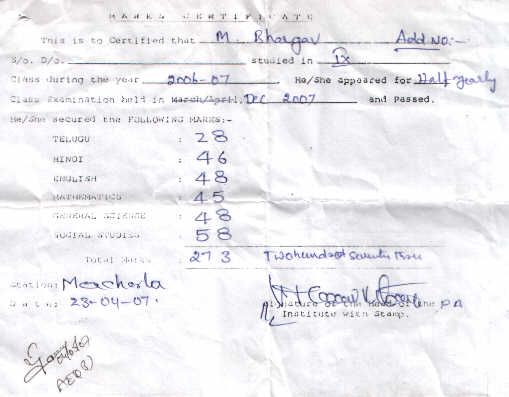 MARKS CERTIFICATE
This is to Certified that M. Bhargav Add NO:-
S/o. D/o. studied in IX
Class during the year 2006-07 He/She appeared for Half yearly
Class Examination held in March/April, Dec 2007 and Passed.
He/She secured the FOLLOWING MARKS:-
TELUGU : 28
HINDI : 46
ENGLISH : 48
MATHEMATICS : 45
GENERAL SCIENCE : 48
SOCIAL STUDIES : 58
Total Marks : 273 Two hundred seventy three
Station: Macherla
Date: 23-04-07.
Signature of the Head of the
Institute with Stamp.